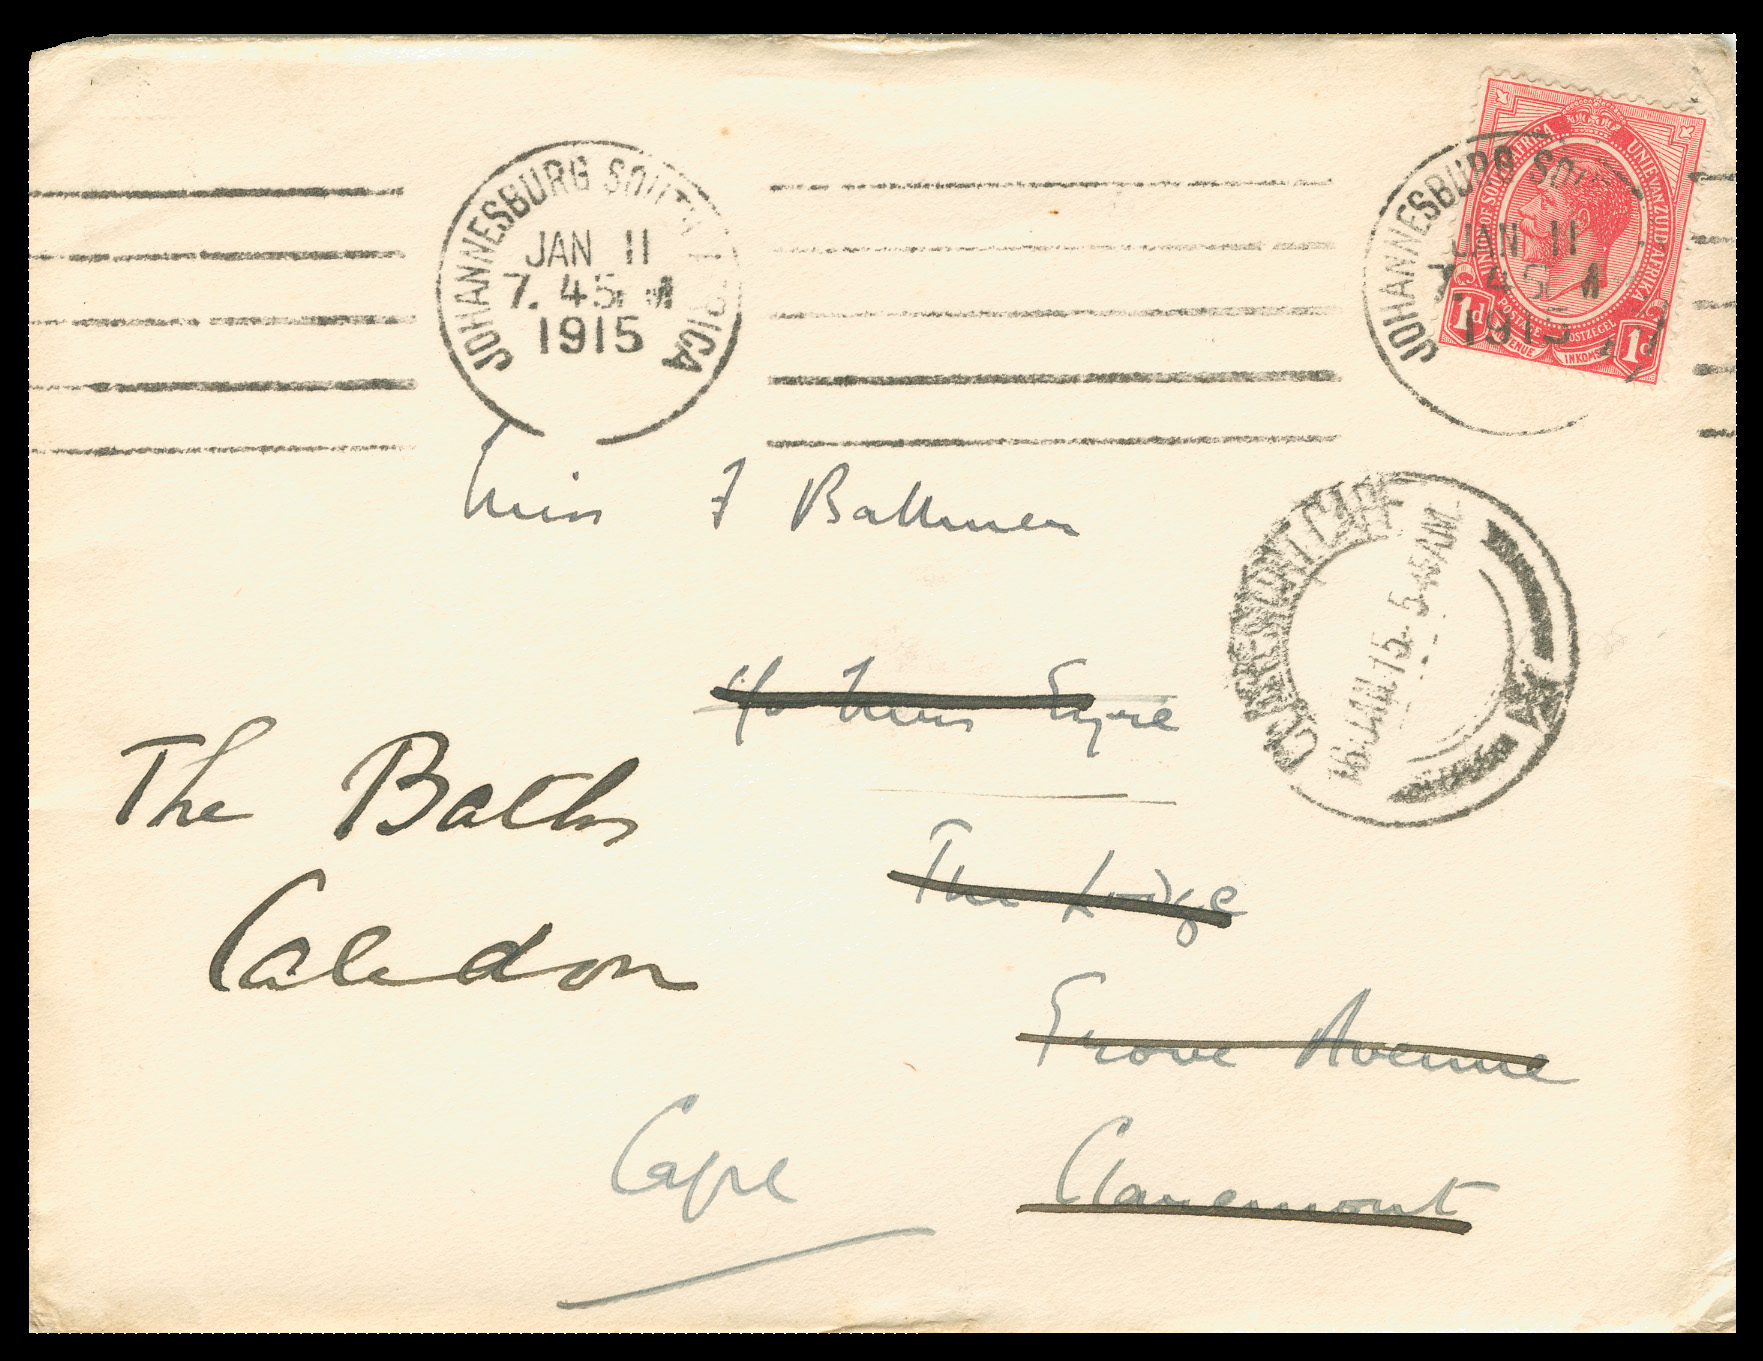 JOHANNESBURG SOUTH AFRICA
JAN 11
7. 45 PM
1915
JOHANNESBURG SOUTH
JAN 11
7. 45 PM
1915
UNION OF SOUTH AFRICA UNIE VAN ZUID AFRIKA
POSTAGE POSTZEGEL
REVENUE INKOMST
1d 1d
Miss F Ballmer
CLAREMONT CAPE
16 JAN. 15. 5.45 AM
c/o Miss Eyre
The Lodge
Grove Avenue
Claremont
Cape
The Baths
Caledon